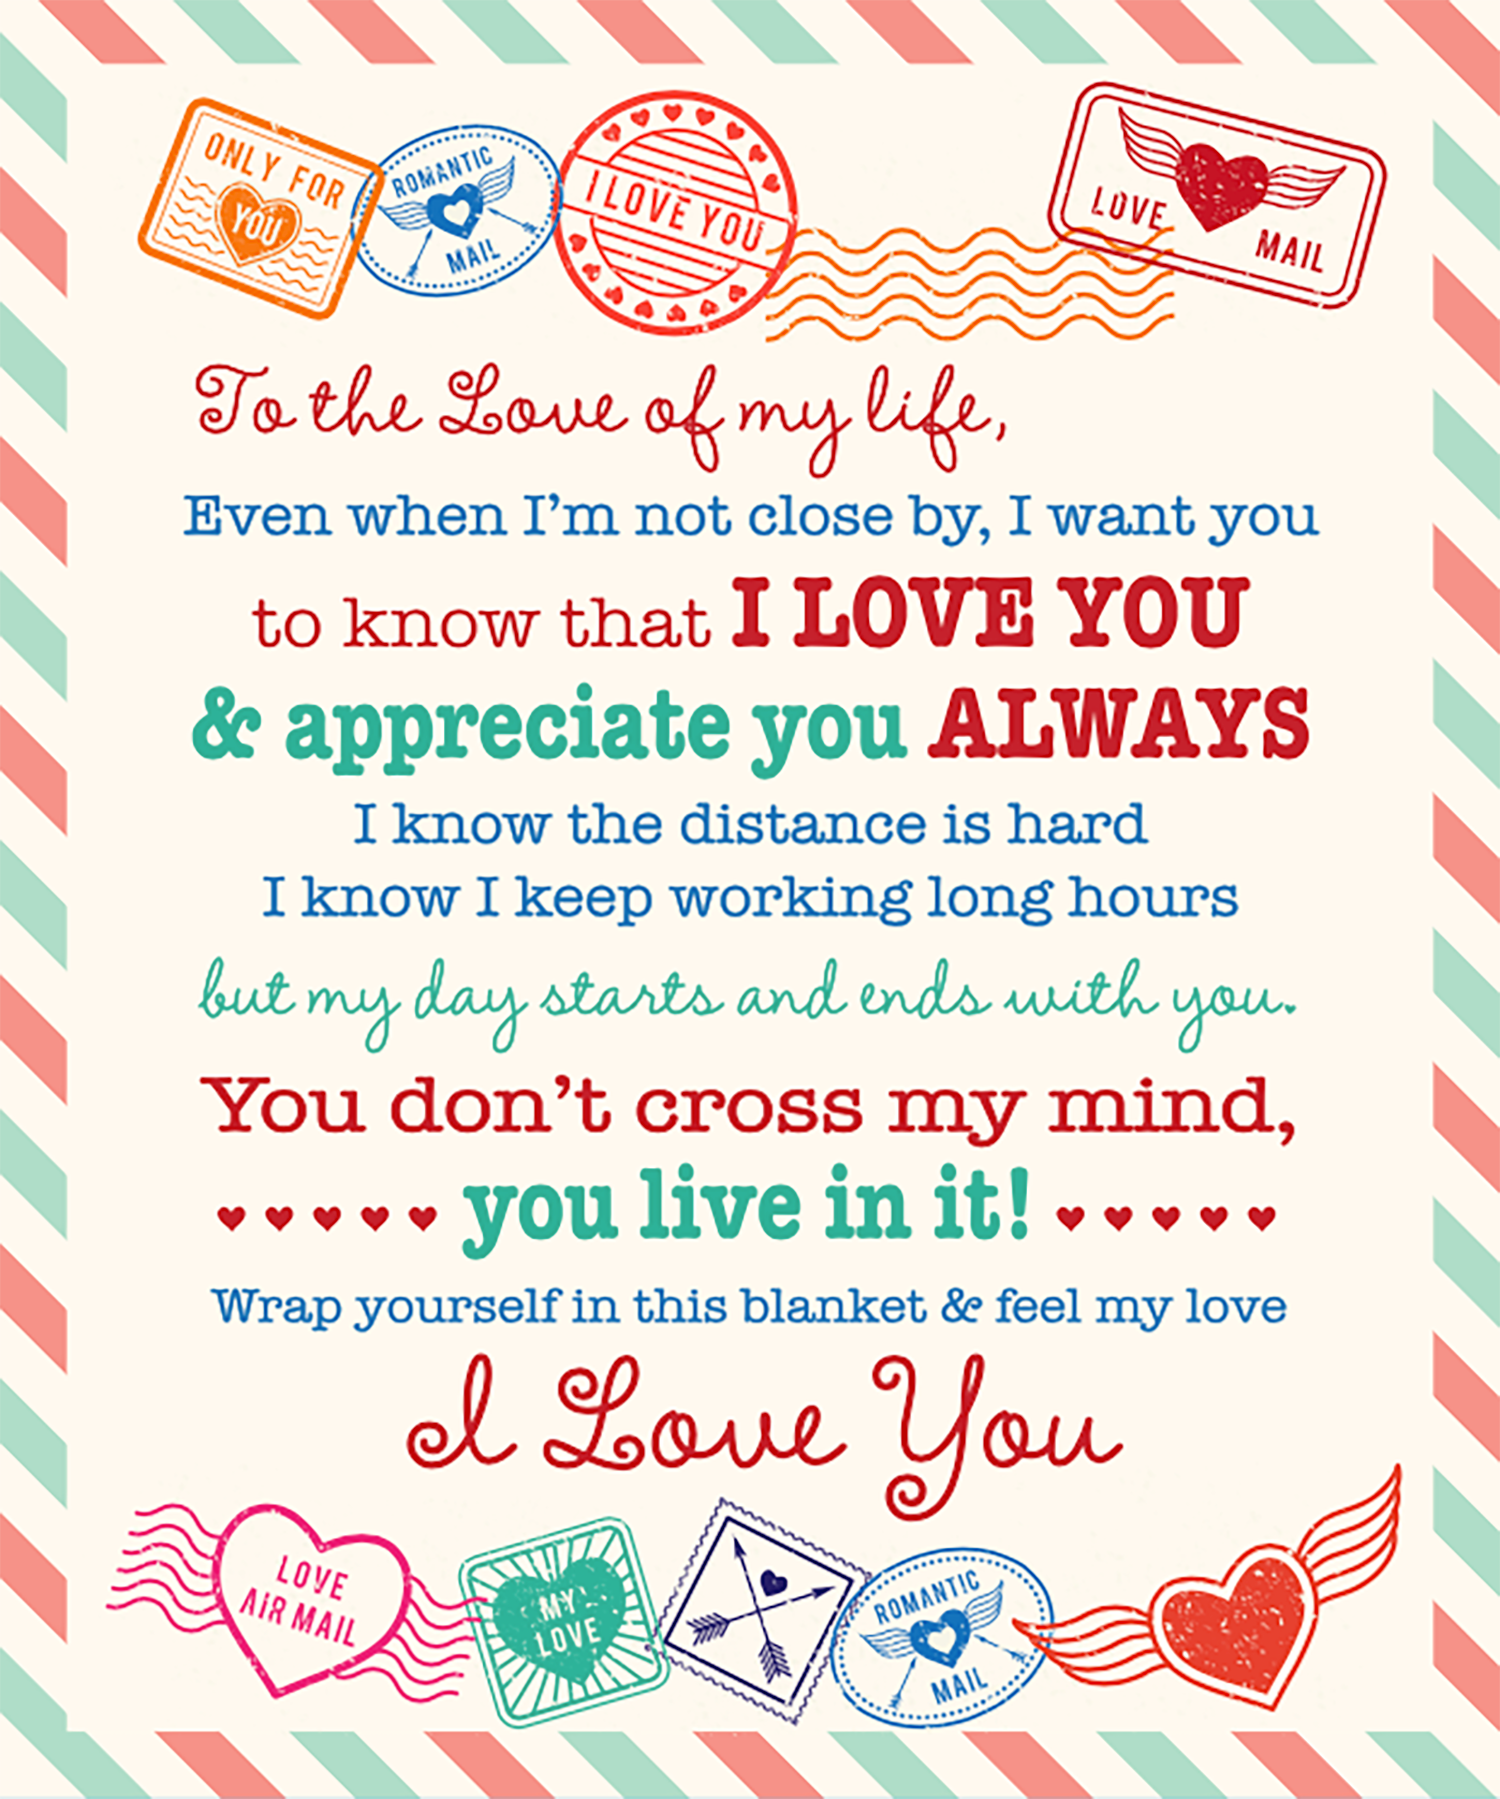 ONLY FOR
YOU
ROMANTIC
MAIL
I LOVE YOU
LOVE
MAIL
To the Love of my life,
Even when I'm not close by, I want you
to know that I LOVE YOU
& appreciate you ALWAYS
I know the distance is hard
I know I keep working long hours
but my day starts and ends with you.
You don't cross my mind,
you live in it!
Wrap yourself in this blanket & feel my love
I Love You
LOVE
AIR MAIL
MY
LOVE
ROMANTIC
MAIL